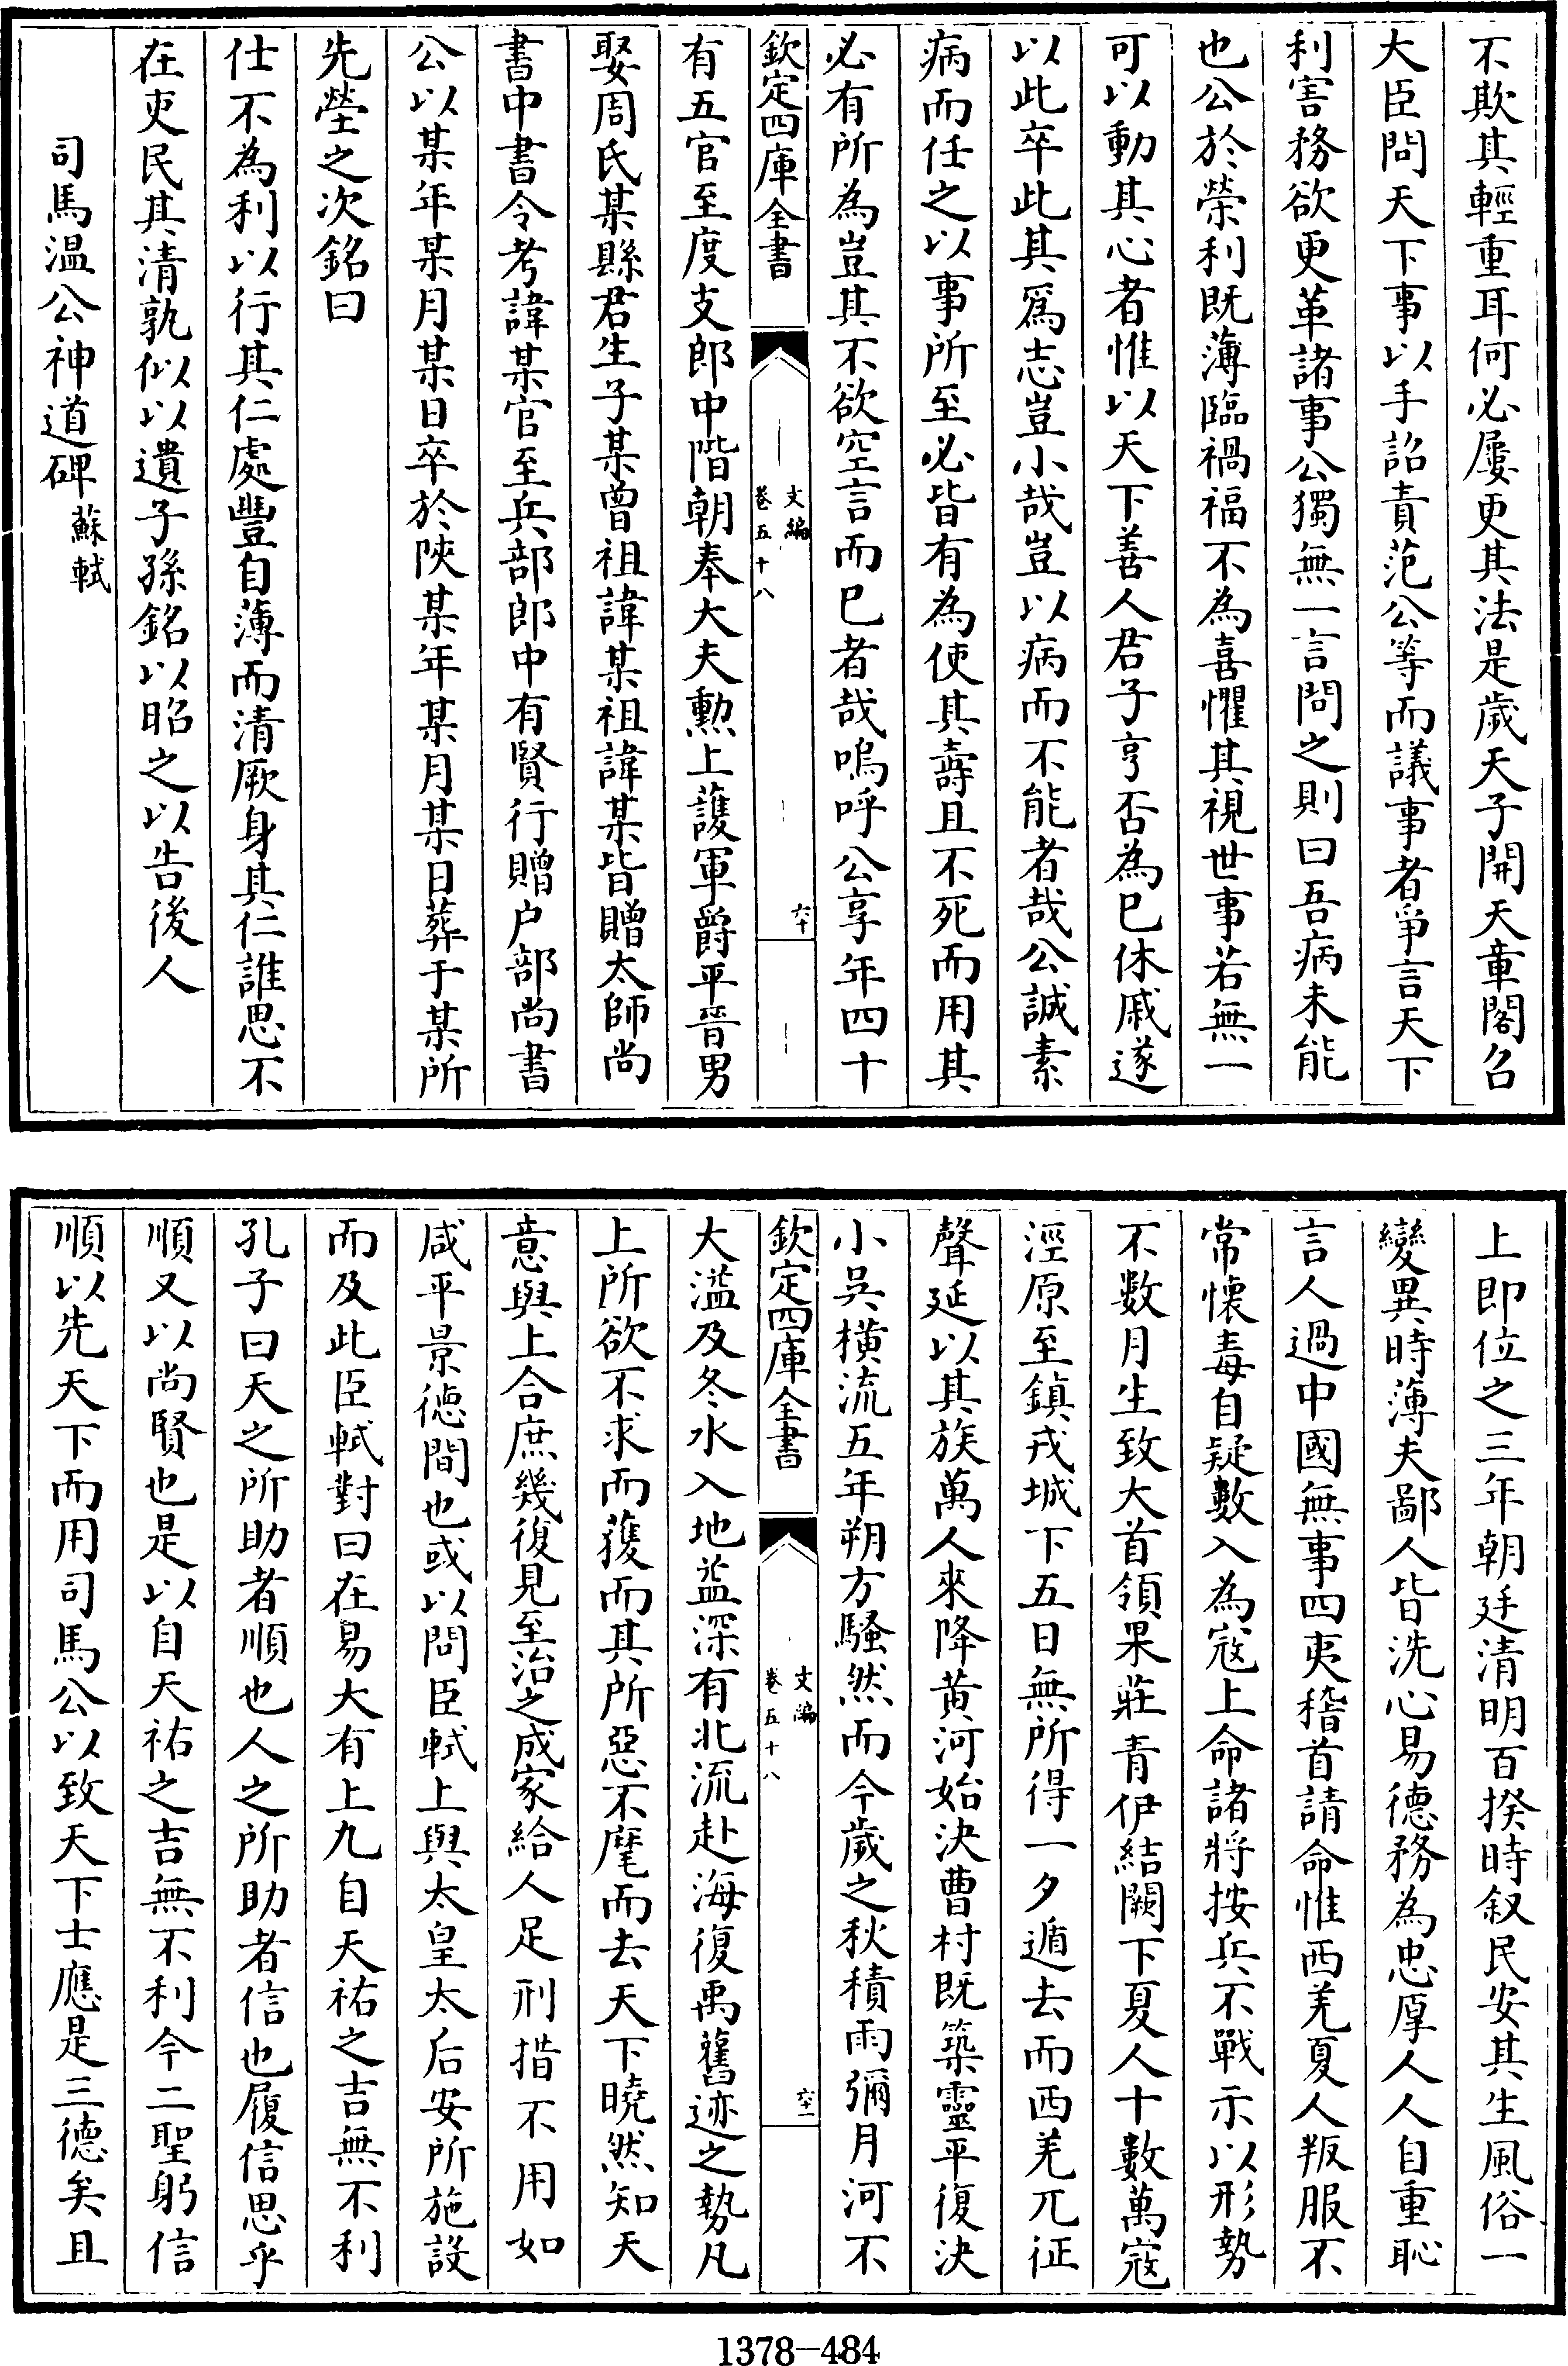 不欺其輕重耳何必屢更其法是歲天子開天章閣召
大臣問天下事以手詔責范公等而議事者爭言天下
利害務欲更革諸事公獨無一言問之則曰吾病未能
也公於榮利既薄臨禍福不為喜懼其視世事若無一
可以動其心者惟以天下善人君子亨否為已休戚遂
以此卒此其為志豈小哉豈以病而不能者哉公誠素
病而任之以事所至必皆有為使其壽且不死而用其
必有所為豈其不欲空言而已者哉嗚呼公享年四十
欽定四庫全書
文編
卷五十八
六十
有五官至度支郎中階朝奉大夫勲上護軍爵平晉男
娶周氏某縣君生子某曾祖諱某祖諱某皆贈太師尚
書中書令考諱某官至兵部郎中有賢行贈户部尚書
公以某年某月某日卒於陝某年某月某日葬于某所
先塋之次銘曰
仕不為利以行其仁處豐自薄而清厥身其仁誰思不
在吏民其清孰似以遺子孫銘以昭之以告後人
司馬温公神道碑 蘇軾
上即位之三年朝廷清明百揆時叙民安其生風俗一
變異時薄夫鄙人皆洗心易德務為忠厚人人自重恥
言人過中國無事四夷稽首請命惟西羌夏人叛服不
常懷毒自疑數入為寇上命諸將按兵不戰示以形勢
不數月生致大首領果莊青伊結闕下夏人十數萬寇
涇原至鎮戎城下五日無所得一夕遁去而西羌兀征
聲延以其族萬人來降黄河始決曹村既築靈平復決
小吳橫流五年朔方騷然而今歲之秋積雨彌月河不
欽定四庫全書
文編
卷五十八
六十一
大溢及冬水入地益深有北流赴海復禹舊迹之勢凡
上所欲不求而獲而其所惡不麾而去天下曉然知天
意與上合庶幾復見至治之成家給人足刑措不用如
咸平景德間也或以問臣軾上與太皇太后安所施設
而及此臣軾對曰在易大有上九自天祐之吉無不利
孔子曰天之所助者順也人之所助者信也履信思乎
順又以尚賢也是以自天祐之吉無不利今二聖躬信
順以先天下而用司馬公以致天下士應是三德矣且
1378-484